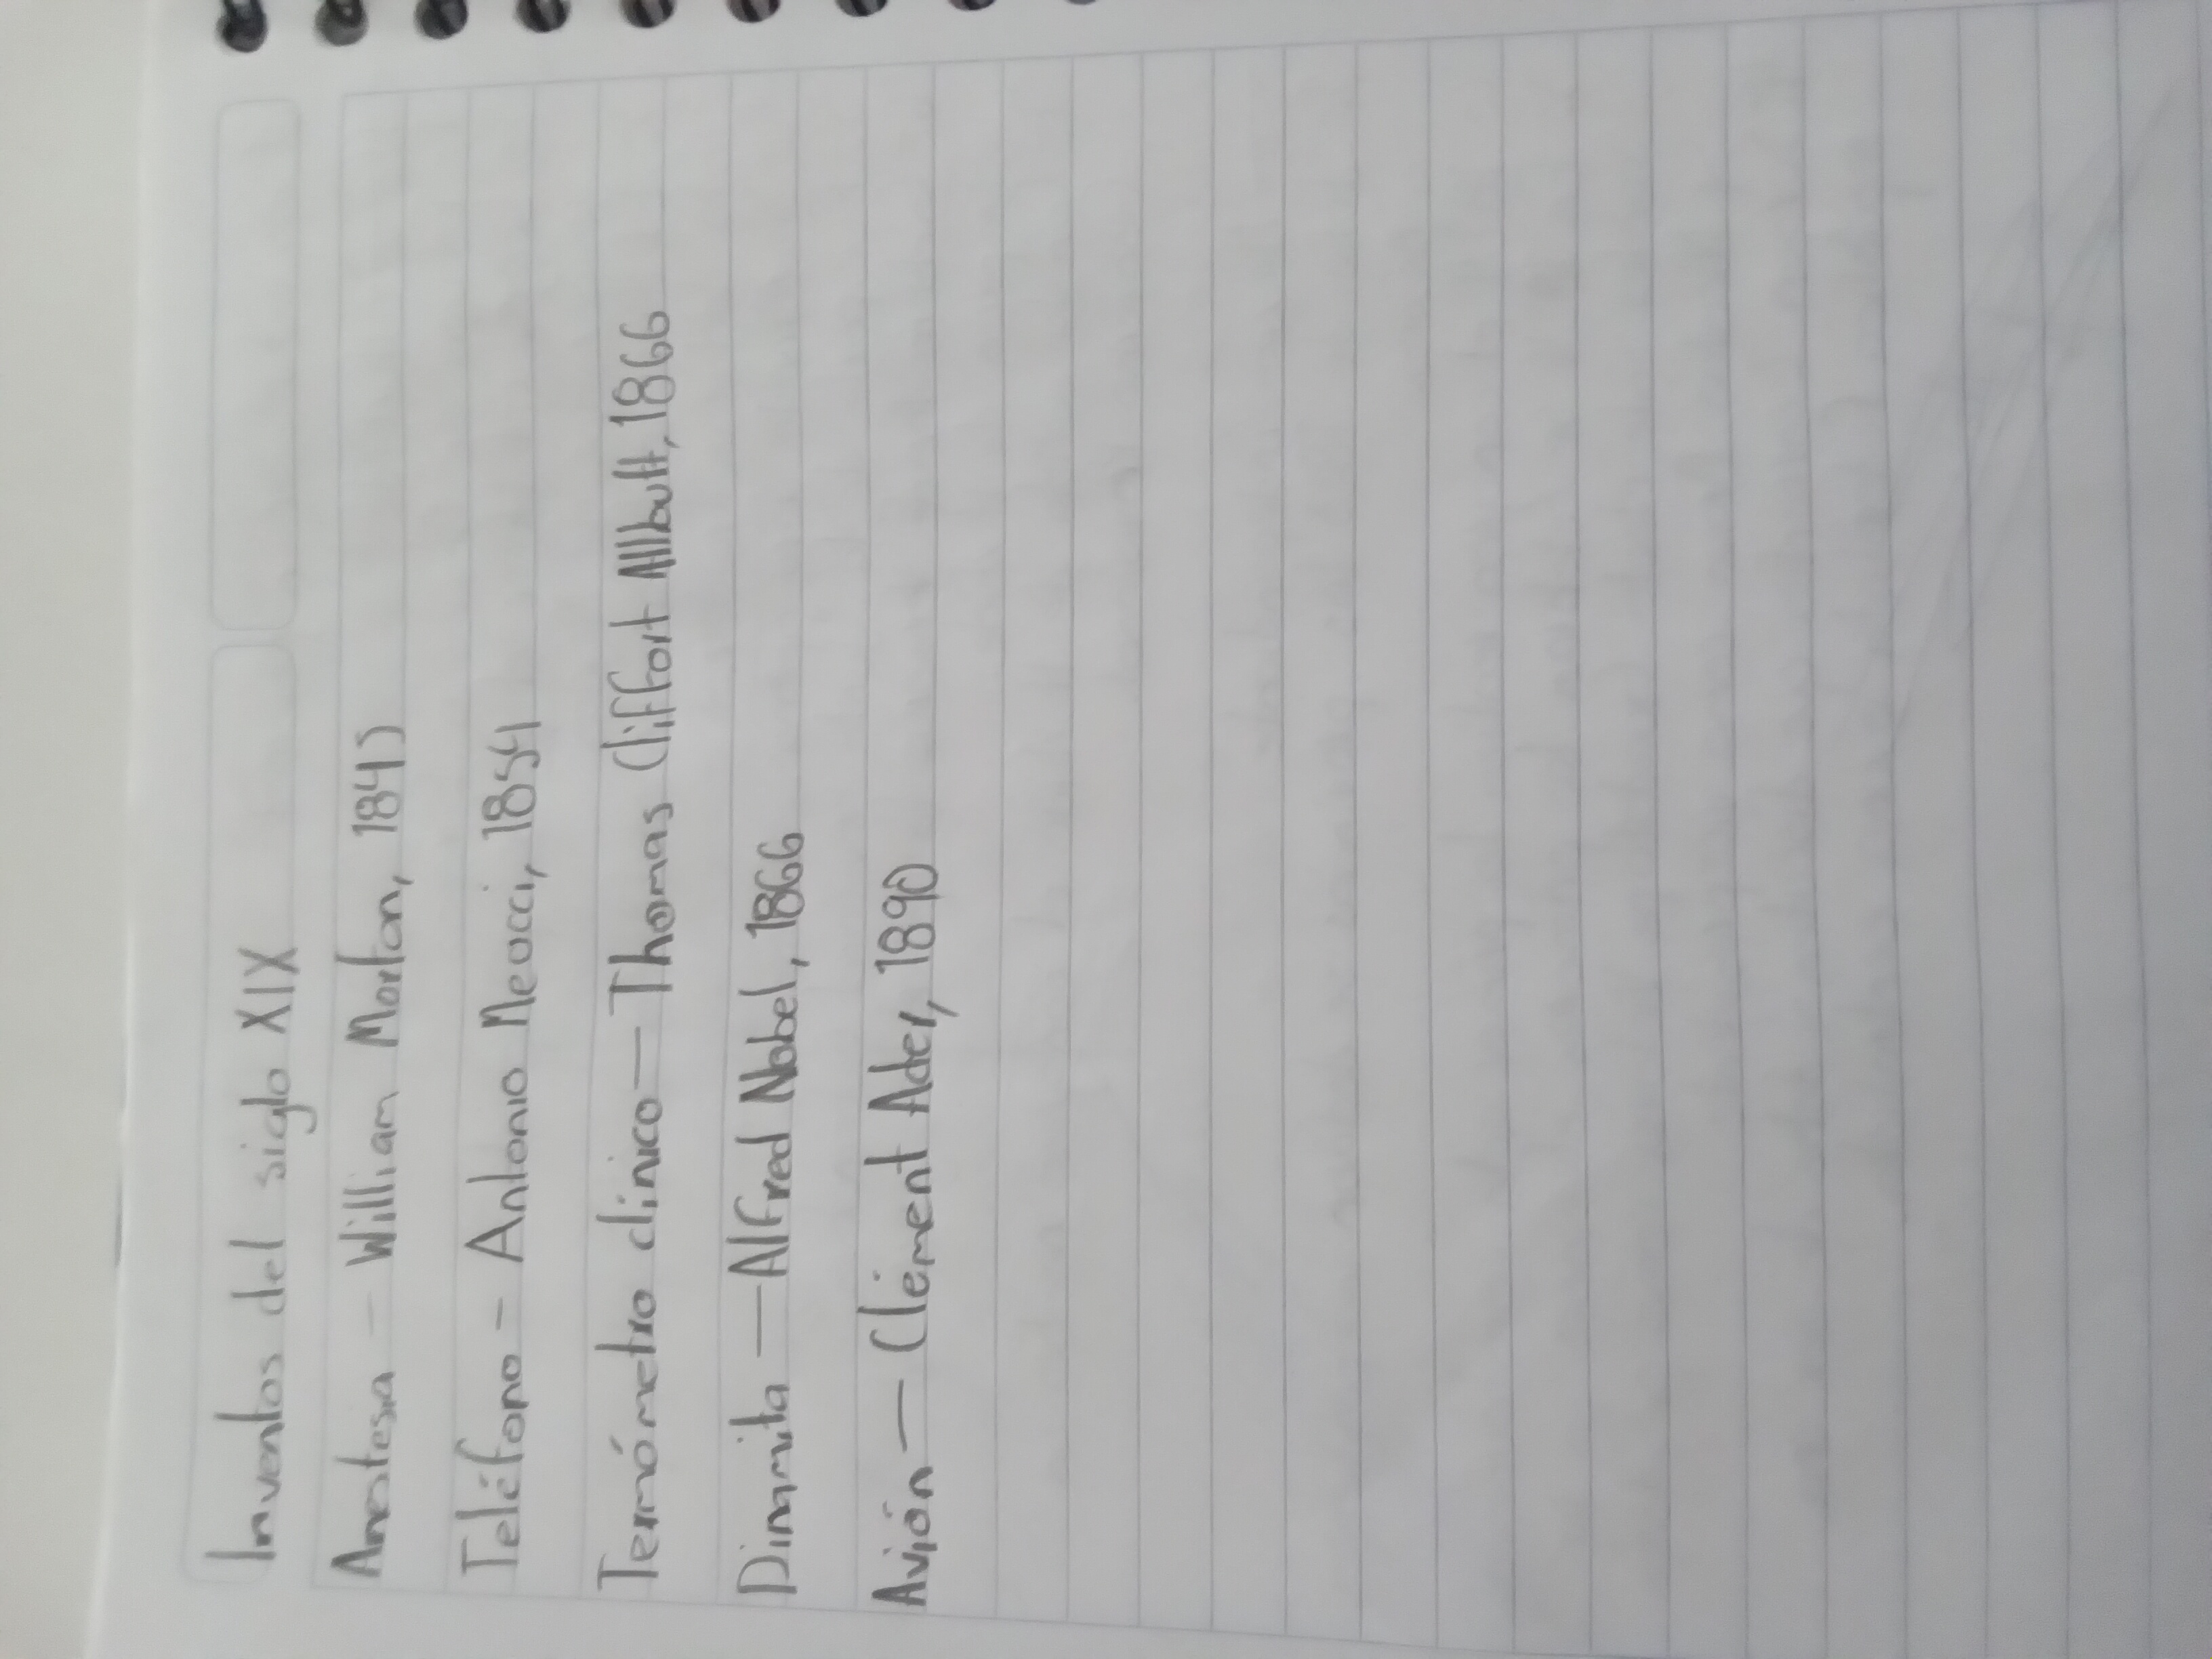 Inventos del siglo XIX
Anestesia – William Morton, 1845
Teléfono – Antonio Meucci, 1854
Termómetro clínico – Thomas Cliffort Allbutt, 1866
Dinamita – Alfred Nobel, 1866
Avión – Clément Ader, 1890